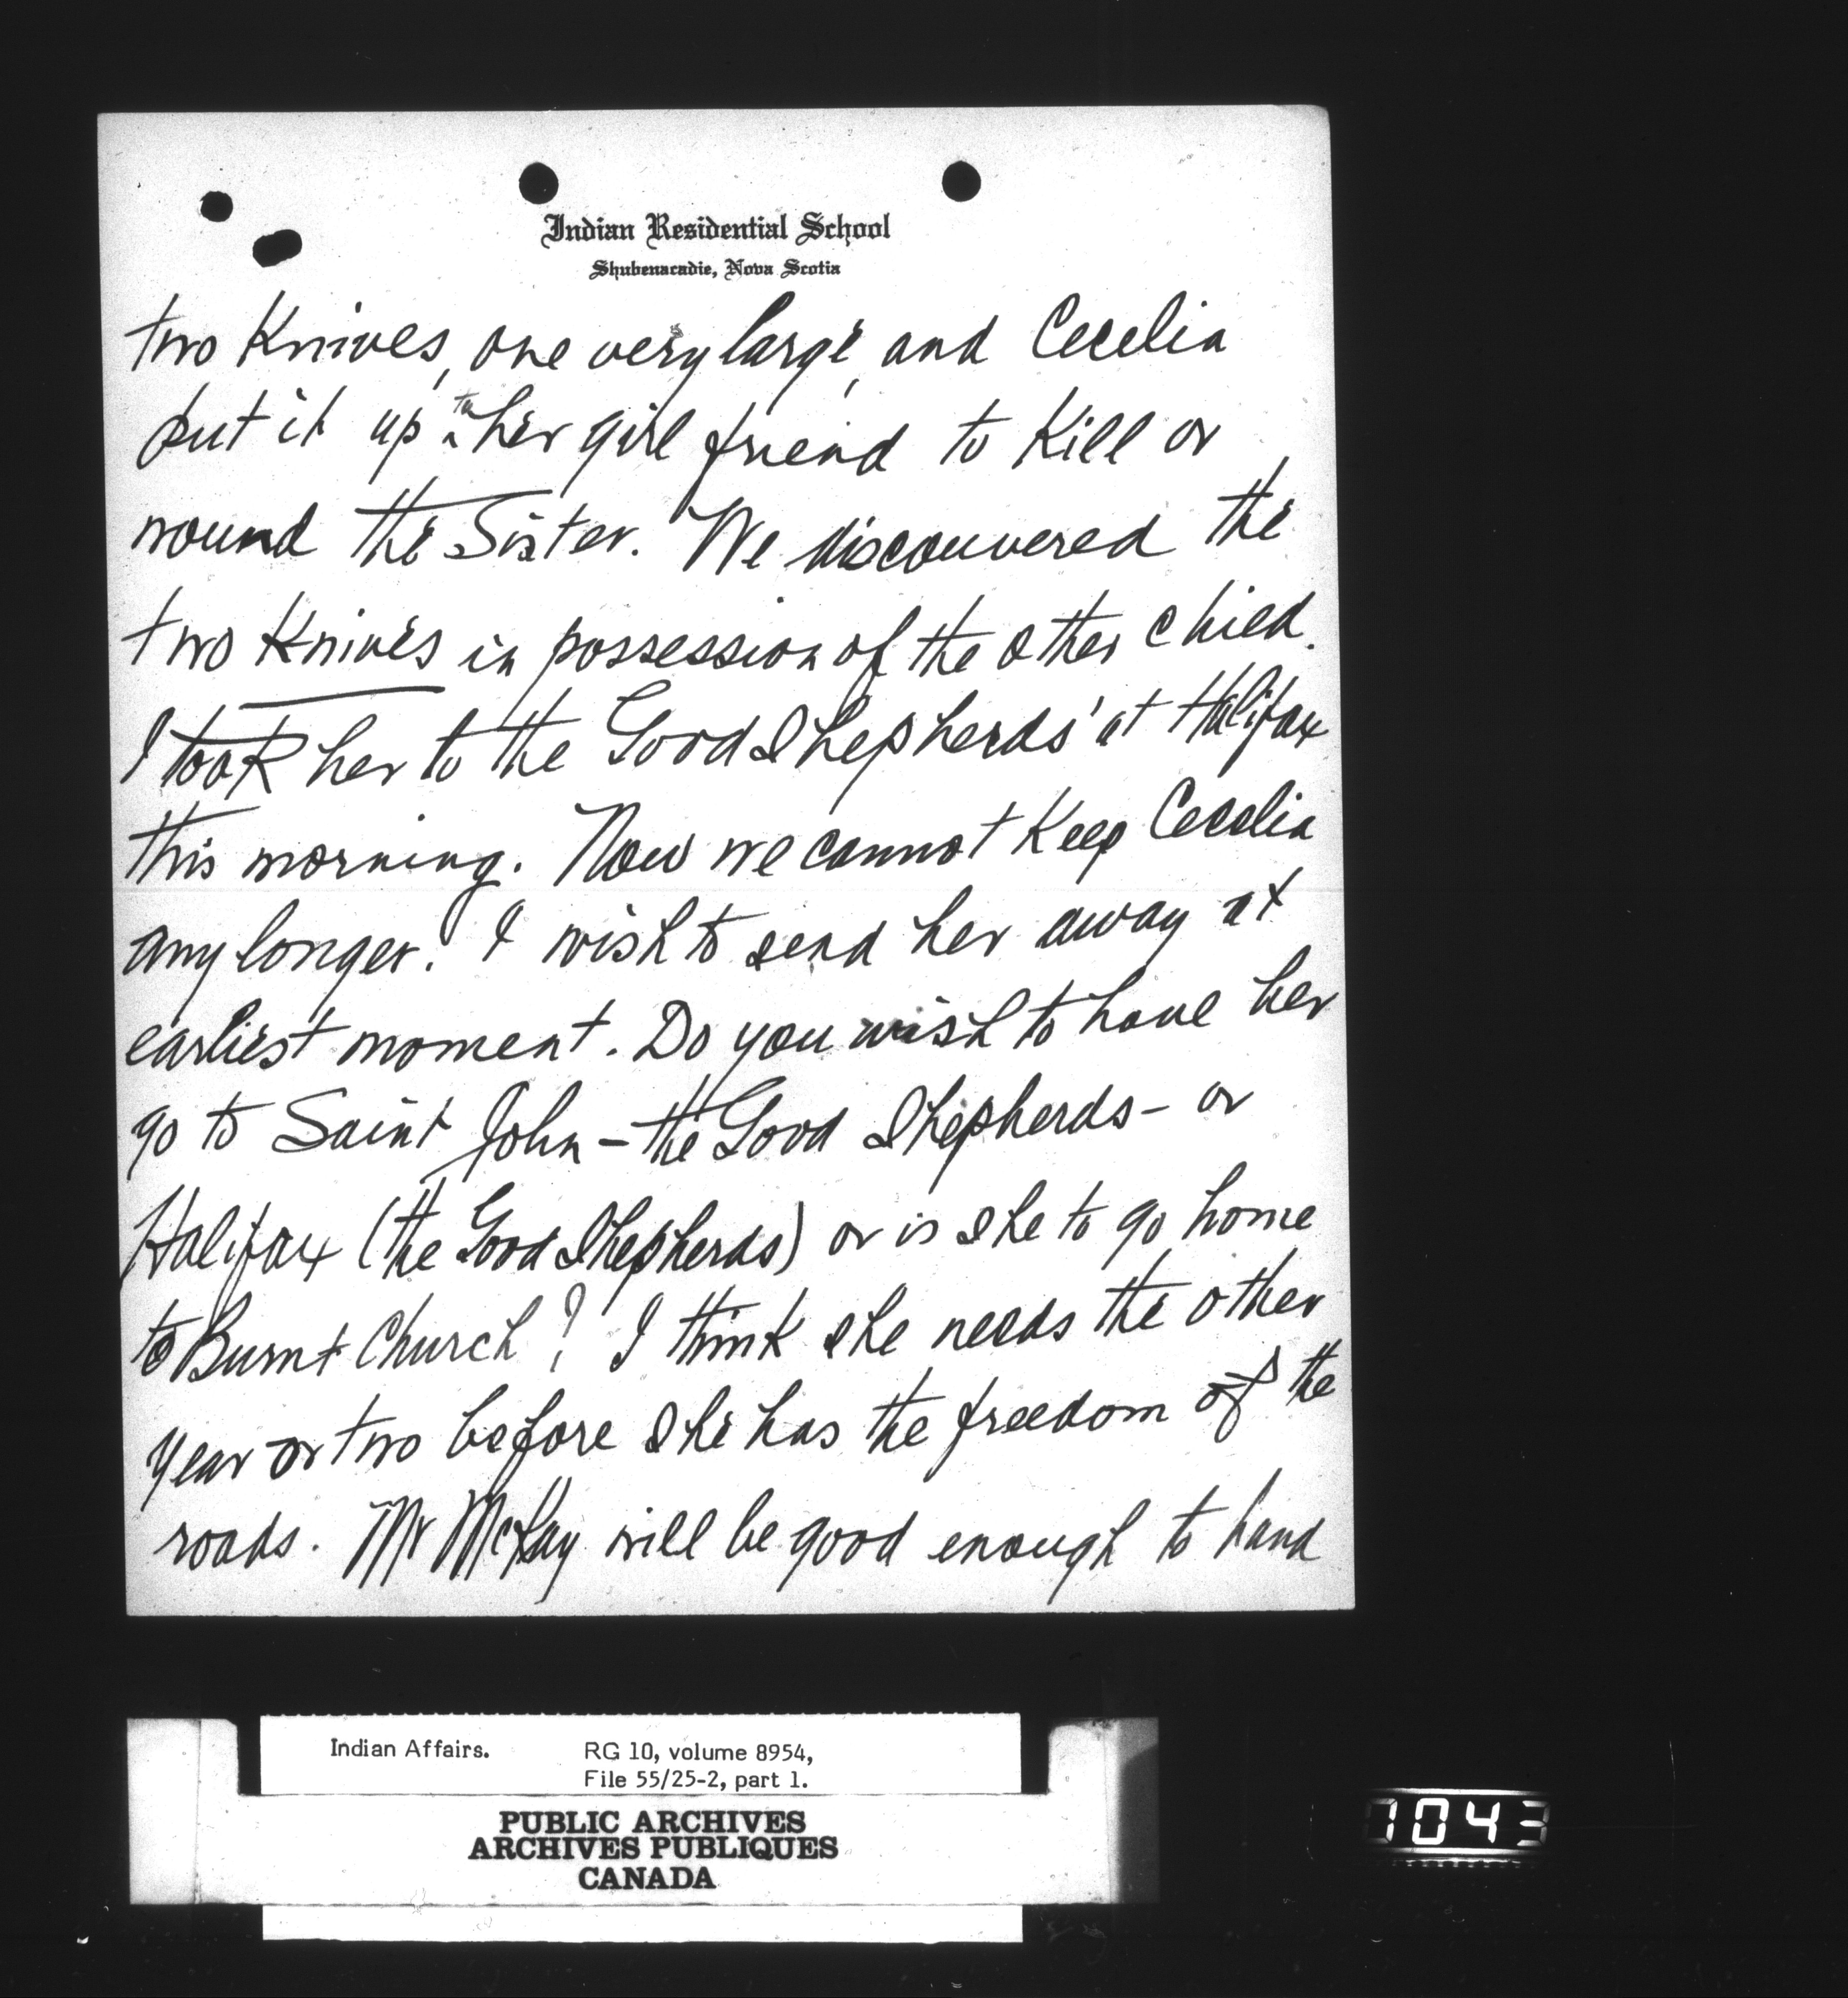 Indian Residential School
Shubenacadie, Nova Scotia
two Knives, one very large, and Cecelia
put it up to her girl friend to Kill or
wound the Sister. We discouvered the
two Knives in possession of the other child.
I took her to the Good Shepherds' at Halifax
this morning. Now we cannot Keep Cecelia
any longer. I wish to send her away at
earliest moment. Do you wish to have her
go to Saint John - the Good Shepherds - or
Halifax (the Good Shepherds) or is she to go home
to Burnt Church? I think she needs the other
year or two before she has the freedom of the
roads. Mr McKay will be good enough to hand
Indian Affairs. RG 10, volume 8954,
File 55/25-2, part 1.
PUBLIC ARCHIVES
ARCHIVES PUBLIQUES
CANADA
7043